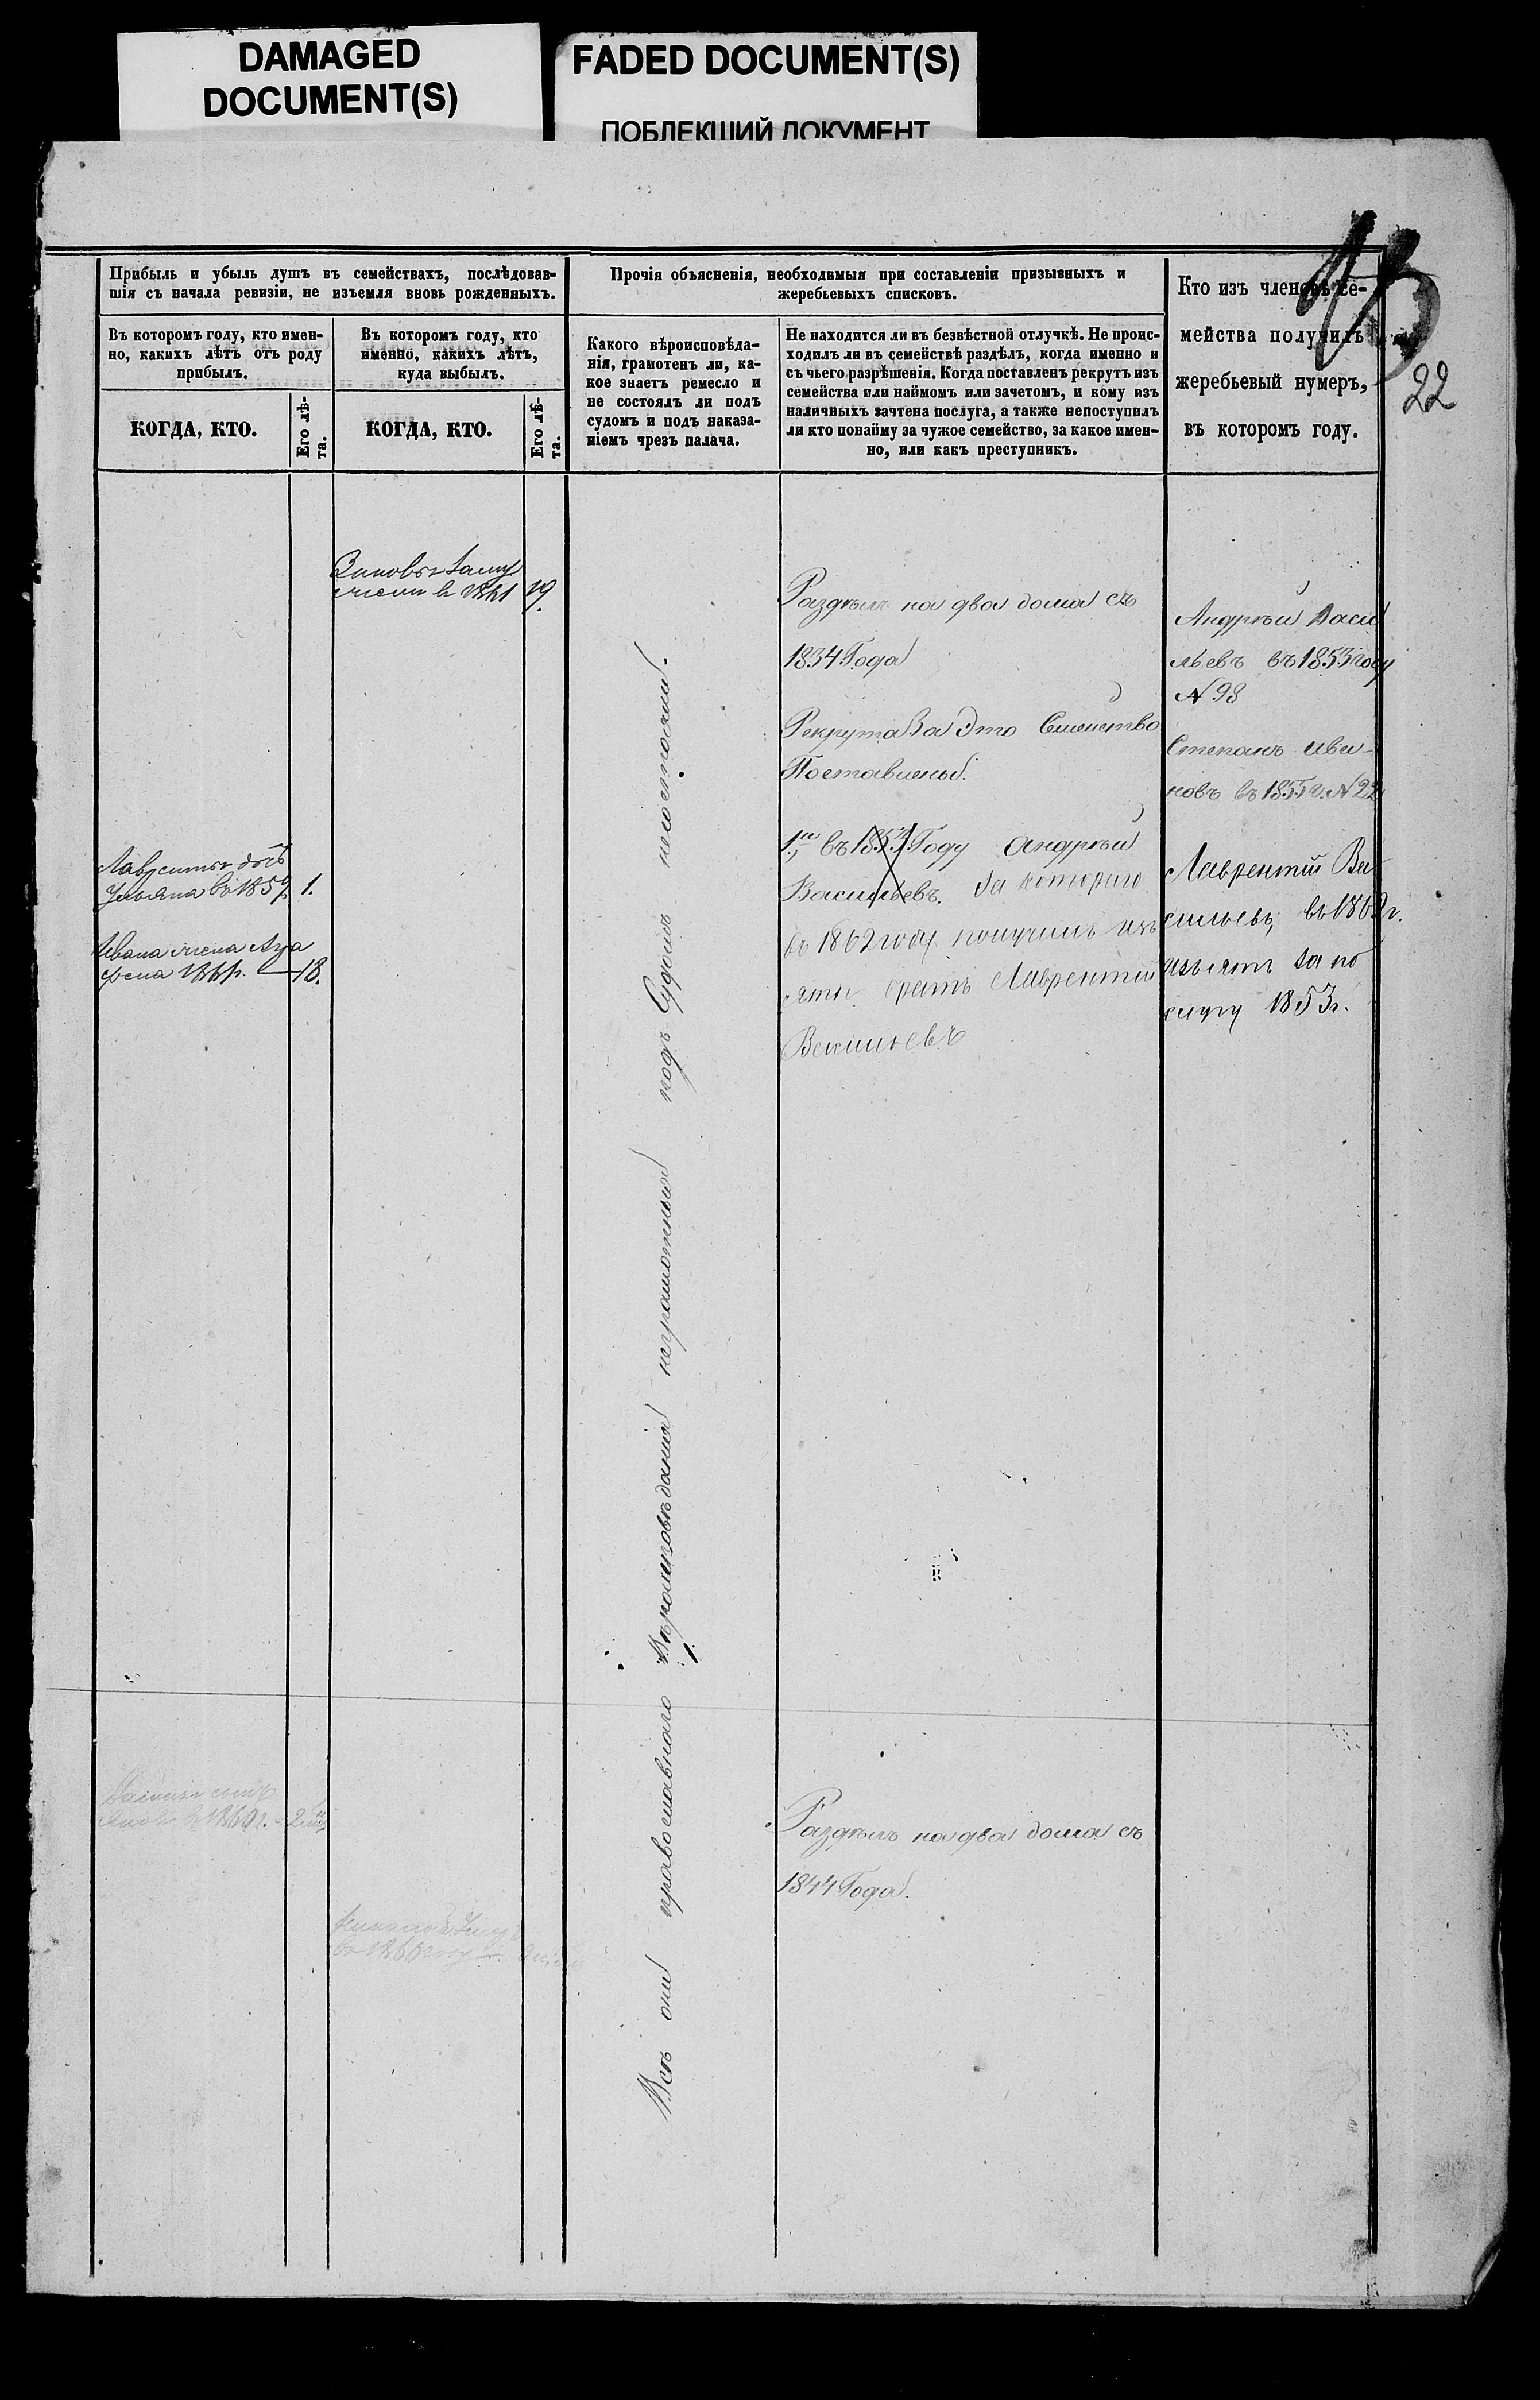 DAMAGED
DOCUMENT(S)
FADED DOCUMENT(S)
ПОБЛЕКШИЙ ДОКУМЕНТ
22
Прибыль и убыль душъ въ семействахъ, послѣдовав-
шія съ начала ревизіи, не изъемля вновь рожденныхъ.
Въ которомъ году, кто имен-
но, какихъ лѣтъ отъ роду
прибылъ.
КОГДА, КТО.
Его лѣ-
та.
Въ которомъ году, кто
именно, какихъ лѣтъ,
куда выбылъ.
КОГДА, КТО.
Его лѣ-
та.
Прочія объясненія, необходимыя при составленіи призывныхъ и
жеребьевыхъ списковъ.
Какого вѣроисповѣда-
нія, грамотенъ ли, ка-
кое знаетъ ремесло и
не состоялъ ли подъ
судомъ и подъ наказа-
ніемъ чрезъ палача.
Не находится ли въ безвѣстной отлучкѣ. Не проис-
ходилъ ли въ семействѣ раздѣлъ, когда именно и
съ чьего разрѣшенія. Когда поставленъ рекрутъ изъ
семейства или наймомъ или зачетомъ, и кому изъ
наличныхъ зачтена послуга, а также непоступилъ
ли кто понайму за чужое семейство, за какое имен-
но, или какъ преступникъ.
Кто изъ членовъ се-
мейства получилъ
жеребьевый нумеръ,
въ которомъ году.
19.
Лаврентья дочь
Ульяна въ 1859 1.
Ивана жена Агра
фена 18.
Всѣ они православнаго Вѣроисповѣданія неграмотныя подъ Судомъ несостояли.
Раздѣлъ на два дома съ
1834 Года
Рекрута За Это Семейство
Поставлены.
1й въ 1853 Году Андрѣй
Васильевъ. За котораго
въ 1862 году получилъ изъ
ятіе братъ Лаврентій
Васильевъ
Андрѣй Васи
льевъ въ 1853 году
N 98
Степанъ Ива-
новъ въ 1855 г. N 22
Лаврентій Ва
сильевъ, въ 1862 г.
изъятъ за по
слугу 1853 г.
Раздѣлъ на два дома съ
1844 Года.